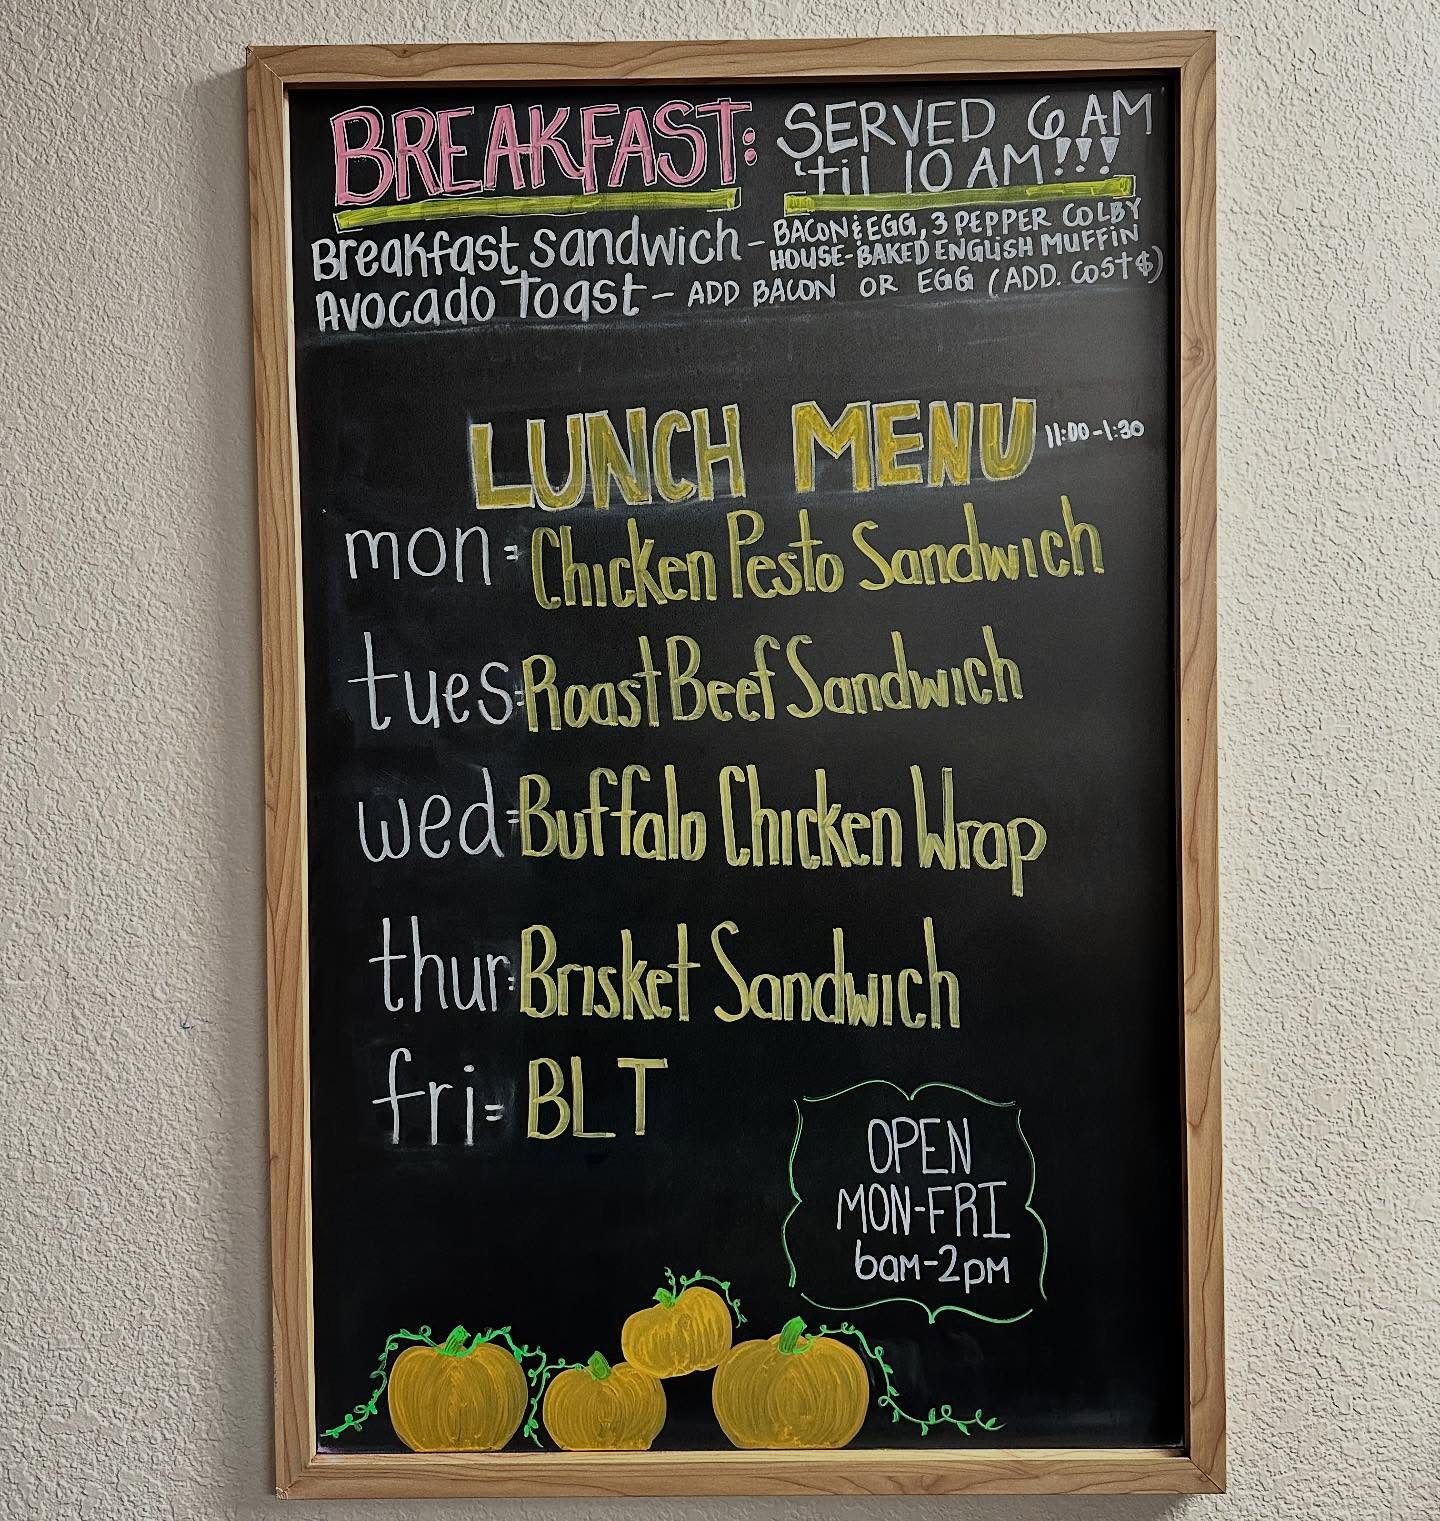 BREAKFAST: SERVED 6 AM
'til 10 AM!!!
Breakfast Sandwich - BACON & EGG, 3 PEPPER COLBY
HOUSE-BAKED ENGLISH MUFFIN
Avocado Toast - ADD BACON OR EGG (ADD. COST $)
LUNCH MENU 11:00-1:30
mon: Chicken Pesto Sandwich
tues: Roast Beef Sandwich
wed: Buffalo Chicken Wrap
thur: Brisket Sandwich
fri: BLT
OPEN
MON-FRI
6am-2pm